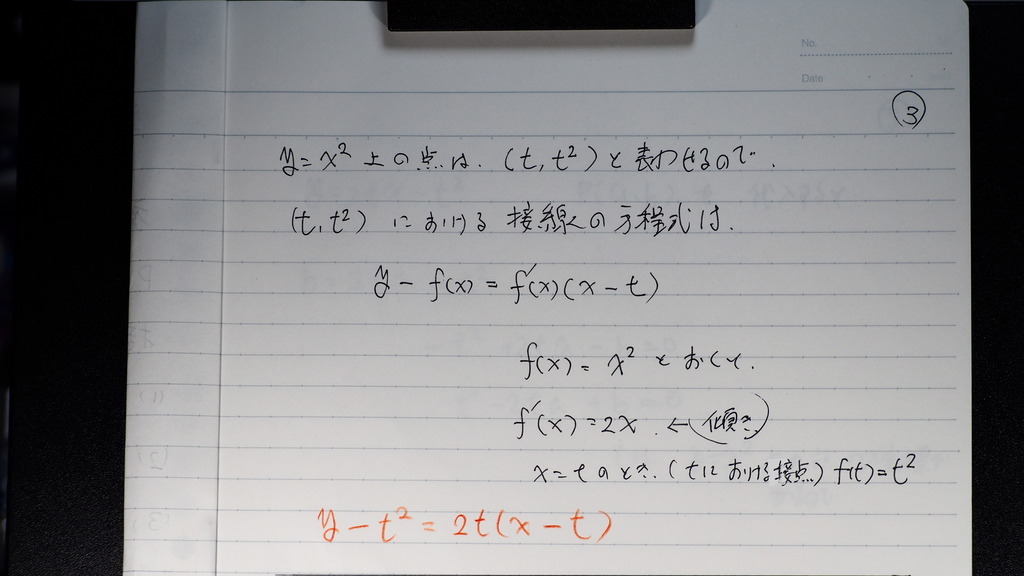 No.
Date
③
y=x² 上の点は、(t, t²) と表わせるので、
(t, t²) における 接線の方程式は、
y - f(x) = f'(x)(x - t)
f(x) = x² とおくて、
f'(x) = 2x ← (傾き)
x=tのとき、(tにおける接点) f(t)=t²
y - t² = 2t(x - t)